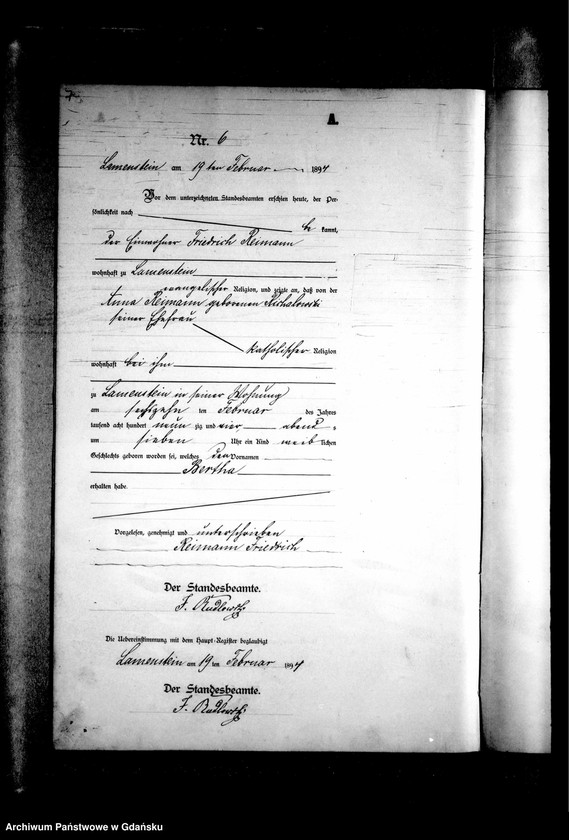 A
Nr. 6
Lamenstein am 19 ten Februar 1894
Vor dem unterzeichneten Standesbeamten erschien heute, der Per-
sönlichkeit nach
be kannt,
der Einwohner Friedrich Reimann
wohnhaft zu Lamenstein
evangelischer Religion, und zeigte an, daß von der
Anna Reimann geborenen Michalowski
seiner Ehefrau
katholischer Religion
wohnhaft bei ihm
zu Lamenstein in seiner Wohnung
am sechszehn ten Februar des Jahres
tausend acht hundert neun zig und vier abend s
um sieben Uhr ein Kind weib lichen
Geschlechts geboren worden sei, welches den Vornamen
Bertha
erhalten habe.
Vorgelesen, genehmigt und unterschrieben
Reimann Friedrich
Der Standesbeamte.
F. Rudlowski
Die Uebereinstimmung mit dem Haupt-Register beglaubigt
Lamenstein am 19 ten Februar 1894
Der Standesbeamte.
F. Rudlowski
Archiwum Państwowe w Gdańsku